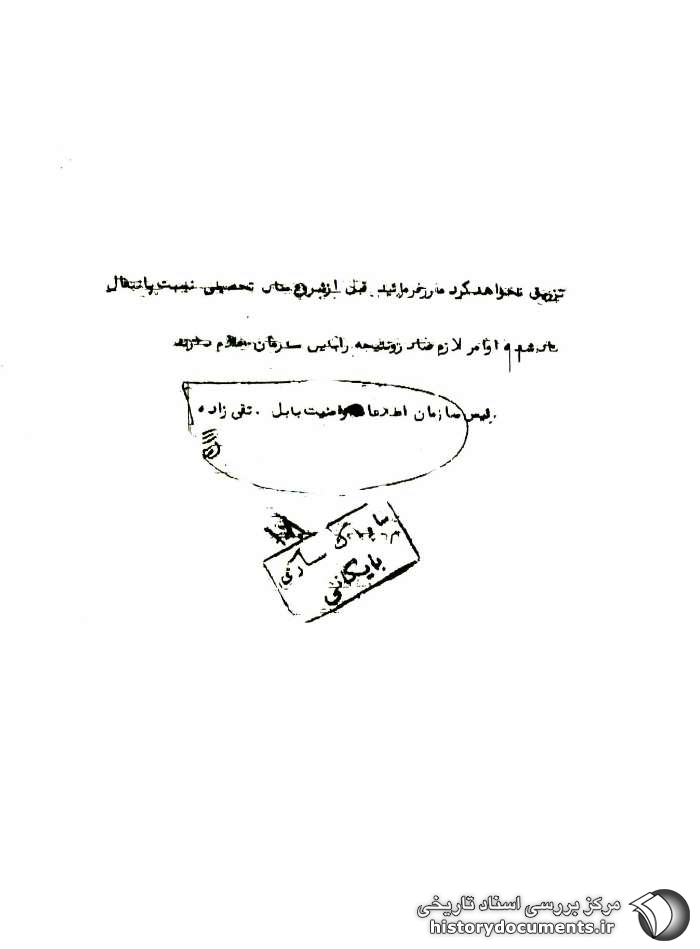 تزریق نخواهد کرد مقرر فرمائید قبل از شروع سال تحصیلی نسبت بانتقال
نامبرده اوامر لازم صادر و نتیجه را باین سازمان اعلام دارند
رئیس سازمان اطلاعات و امنیت بابل . تقی زاده
ساواک ساری
بایگانی
مرکز بررسی اسناد تاریخی
historydocuments.ir